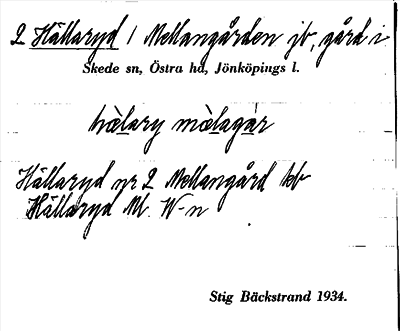 2 Hällaryd / Mellangården jb, gård i
Skede sn, Östra hd, Jönköpings l.
hälary mälagår
Hällaryd nr 2 Mellangård kb
Hällaryd Ml. W-n
Stig Bäckstrand 1934.